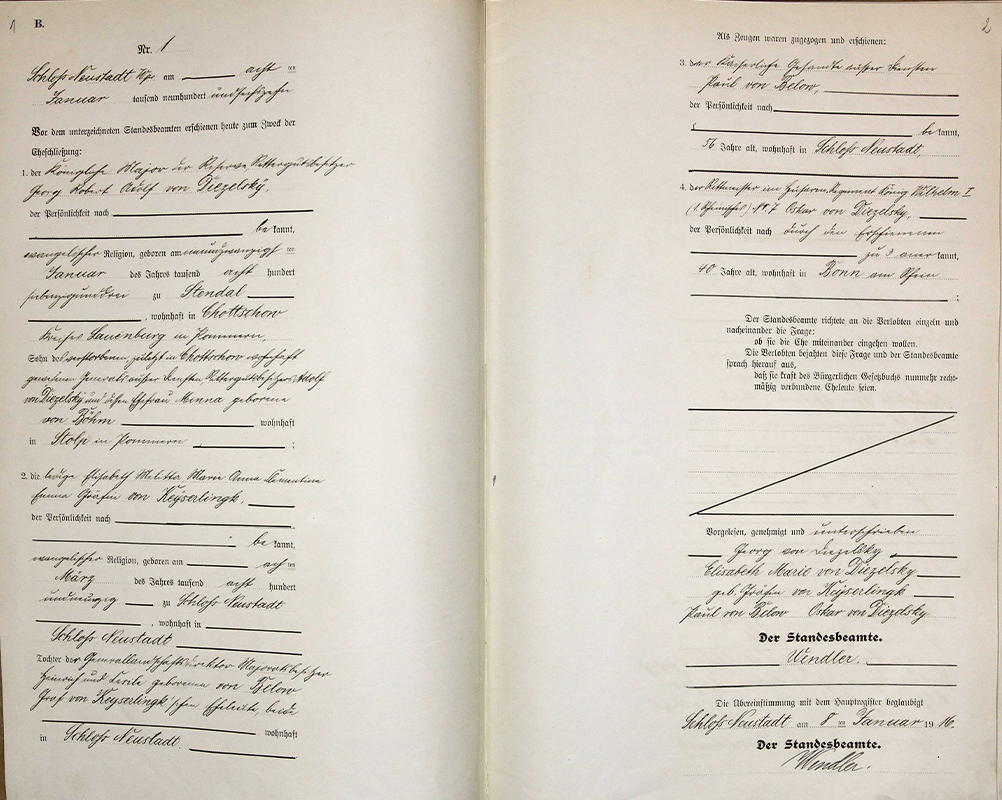 1
B.
Nr. 1
Schloß Neustadt Wpr. am acht ten
Januar tausend neunhundert undsechszehn
Vor dem unterzeichneten Standesbeamten erschienen heute zum Zweck der
Eheschließung:
1. der Königliche Major der Reserve, Rittergutsbesitzer
Georg Robert Adolf von Diezelsky,
der Persönlichkeit nach
be kannt,
evangelischer Religion, geboren am neunundzwanzigst ten
Januar des Jahres tausend acht hundert
siebenzigunddrei zu Stendal
, wohnhaft in Chottschow
Kreises Lauenburg in Pommern,
Sohn des verstorbenen, zuletzt in Chottschow wohnhaft
gewesenen Generals außer Diensten, Rittergutsbesitzers Adolf
von Diezelsky und dessen Ehefrau Minna geborene
von Böhm wohnhaft
in Stolp in Pommern ;
2. die ledige Elisabeth Melitta Marie Anna Clementine
Emma Gräfin von Keyserlingk,
der Persönlichkeit nach
be kannt,
evangelischer Religion, geboren am ach ten
März des Jahres tausend acht hundert
undneunzig zu Schloß Neustadt
, wohnhaft in
Schloß Neustadt
Tochter der Generallandschaftsdirektor Majoratsbesitzer
Heinrich und Cecile geborenen von Below
Graf von Keyserlingk'schen Eheleute, beide
wohnhaft
in Schloß Neustadt.
2
Als Zeugen waren zugezogen und erschienen:
3. der Kaiserliche Gesandte außer Diensten
Paul von Below,
der Persönlichkeit nach
be kannt,
56 Jahre alt, wohnhaft in Schloß Neustadt,
4. der Rittmeister im Husaren-Regiment König Wilhelm I
(1. Rheinisches) Nr. 7 Oskar von Diezelsky,
der Persönlichkeit nach durch den Erschienenen
zu 3 aner kannt,
40 Jahre alt, wohnhaft in Bonn am Rhein
;
Der Standesbeamte richtete an die Verlobten einzeln und
nacheinander die Frage:
ob sie die Ehe miteinander eingehen wollen.
Die Verlobten bejahten diese Frage und der Standesbeamte
sprach hierauf aus,
daß sie kraft des Bürgerlichen Gesetzbuchs nunmehr recht-
mäßig verbundene Eheleute seien.
Vorgelesen, genehmigt und unterschrieben
Georg von Diezelsky
Elisabeth Marie von Diezelsky
geb. Gräfin von Keyserlingk
Paul von Below Oskar von Diezelsky
Der Standesbeamte.
Wendler.
Die Übereinstimmung mit dem Hauptregister beglaubigt
Schloß Neustadt am 8 ten Januar 19 16.
Der Standesbeamte.
Wendler.